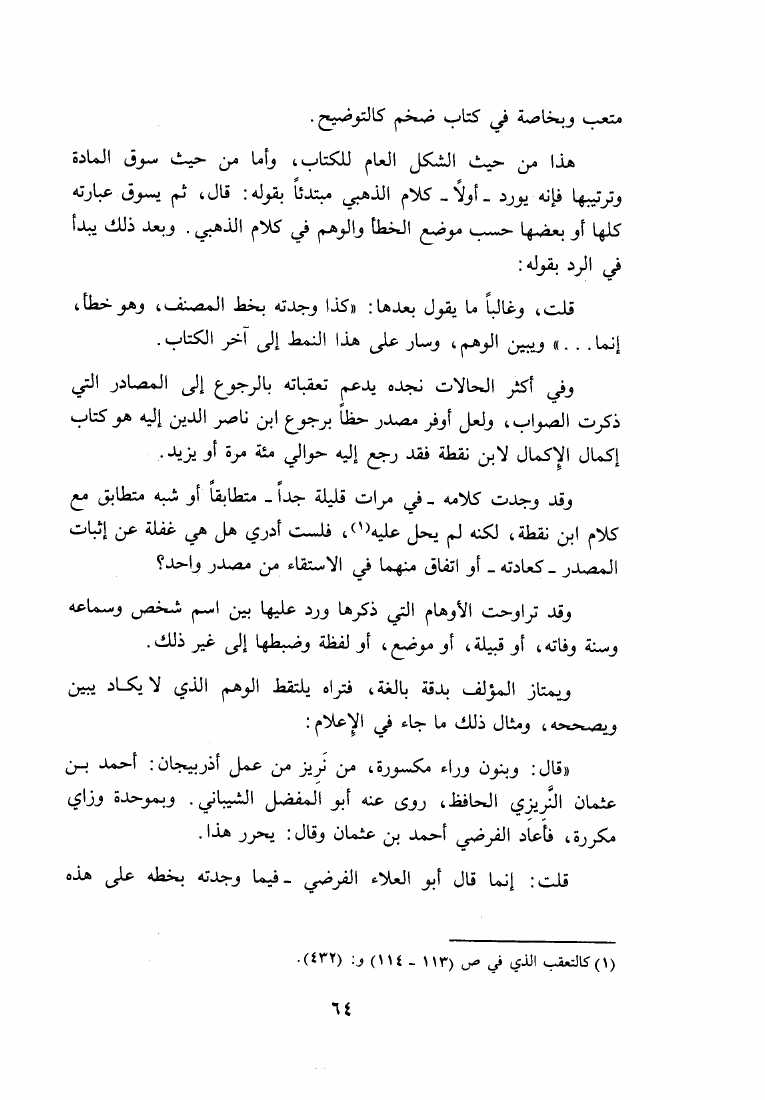 متعب وبخاصة في كتاب ضخم كالتوضيح.
هذا من حيث الشكل العام للكتاب، وأما من حيث سوق المادة
وترتيبها فإنه يورد - أولاً - كلام الذهبي مبتدئاً بقوله: قال، ثم يسوق عبارته
كلها أو بعضها حسب موضع الخطأ والوهم في كلام الذهبي. وبعد ذلك يبدأ
في الرد بقوله:
قلت، وغالباً ما يقول بعدها: «كذا وجدته بخط المصنف، وهو خطأ،
إنما...» ويبين الوهم، وسار على هذا النمط إلى آخر الكتاب.
وفي أكثر الحالات نجده يدعم تعقباته بالرجوع إلى المصادر التي
ذكرت الصواب، ولعل أوفر مصدر حظاً برجوع ابن ناصر الدين إليه هو كتاب
إكمال الإكمال لابن نقطة فقد رجع إليه حوالي مئة مرة أو يزيد.
وقد وجدت كلامه - في مرات قليلة جداً - متطابقاً أو شبه متطابق مع
كلام ابن نقطة، لكنه لم يحل عليه(١)، فلست أدري هل هي غفلة عن إثبات
المصدر - كعادته - أو اتفاق منهما في الاستقاء من مصدر واحد؟
وقد تراوحت الأوهام التي ذكرها ورد عليها بين اسم شخص وسماعه
وسنة وفاته، أو قبيلة، أو موضع، أو لفظة وضبطها إلى غير ذلك.
ويمتاز المؤلف بدقة بالغة، فتراه يلتقط الوهم الذي لا يكاد يبين
ويصححه، ومثال ذلك ما جاء في الإعلام:
«قال: وبنون وراء مكسورة، من نَرِيز من عمل أذربيجان: أحمد بن
عثمان النَّرِيزِي الحافظ، روى عنه أبو المفضل الشيباني. وبموحدة وزاي
مكررة، فأعاد الفرضي أحمد بن عثمان وقال: يحرر هذا.
قلت: إنما قال أبو العلاء الفرضي - فيما وجدته بخطه على هذه
(١) كالتعقب الذي في ص (١١٣ - ١١٤) و: (٤٣٢).
٦٤